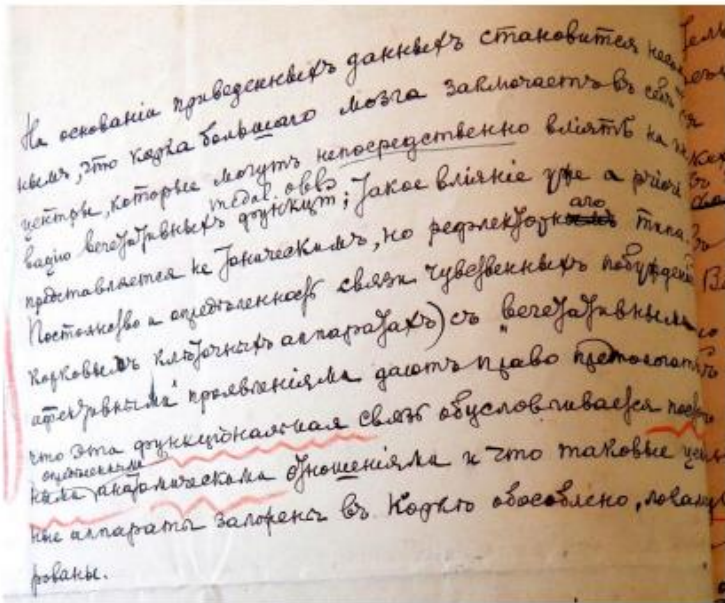 На основаніи приведенныхъ данныхъ становится несом
нымъ, что кора большаго мозга заключаетъ въ себѣ
центры, которые могутъ непосредственно вліять на
вацію вегетативныхъ функцій; такое вліяніе уже a priori
представляется не тоническимъ, но рефлекторнаго типа.
Постоянство и опредѣленность связи чувственныхъ побужденій
корковыхъ клѣточныхъ аппаратахъ) съ "вегетативными
аффективными" проявленіями даютъ право предполагать
что эта функціональная связь обусловливается
опредѣленными
ными анатомическими отношеніями и что таковые
ные аппараты заложены въ корѣ обособлено, локализи
рованы.